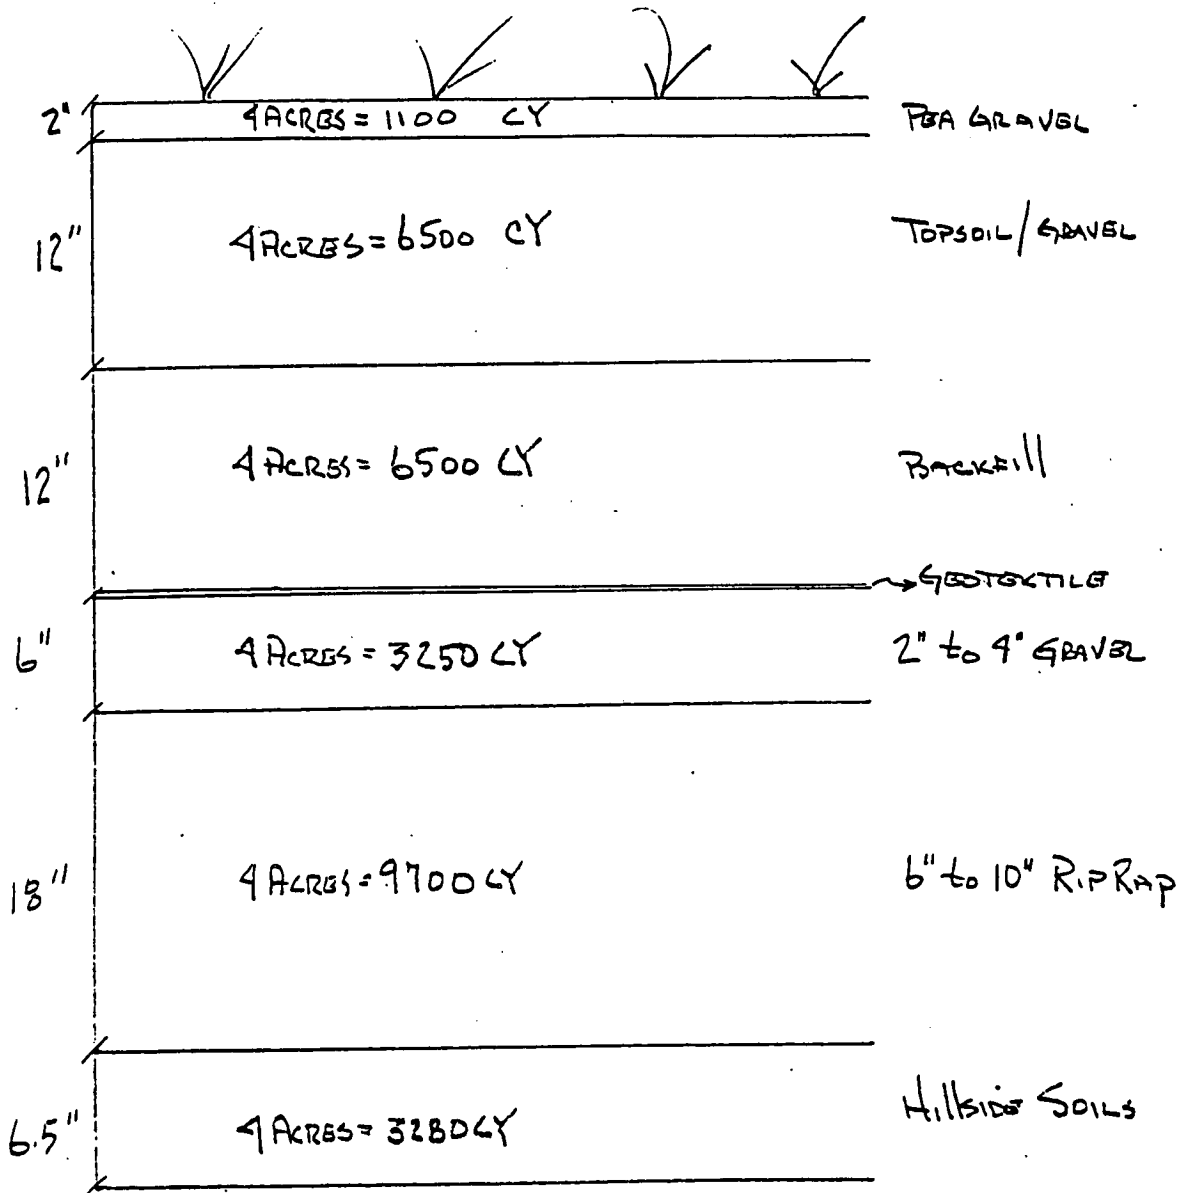 2" 4 ACRES = 1100 CY PEA GRAVEL
12" 4 ACRES = 6500 CY TOPSOIL/GRAVEL
12" 4 ACRES = 6500 CY BACKFill
GEOTEXTILE
6" 4 ACRES = 3250 CY 2" to 4" GRAVEL
18" 4 ACRES = 9700 CY 6" to 10" RIPRAP
6.5" 4 ACRES = 3280 CY HillSIDE SOILS